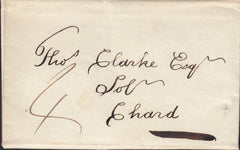 Thos Clarke Esqr
Solr
Chard